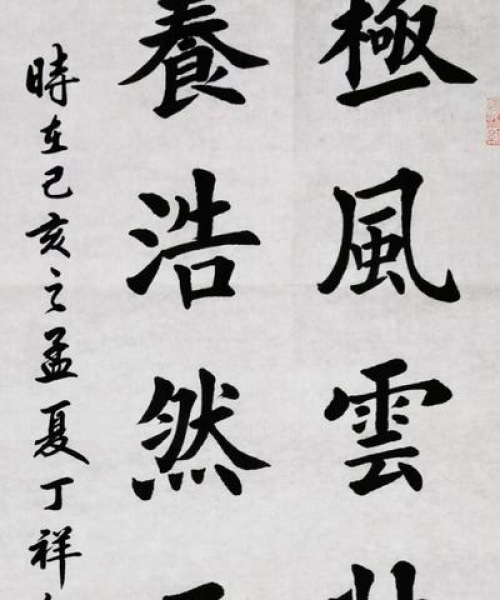 極風雲
養浩然
時在己亥之孟夏丁祥